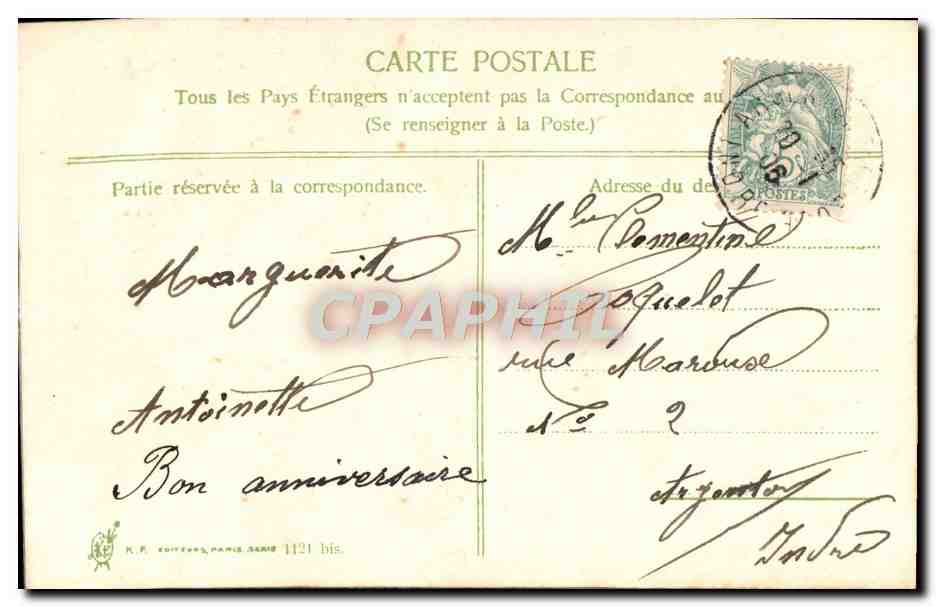 CARTE POSTALE
Tous les Pays Étrangers n'acceptent pas la Correspondance au
(Se renseigner à la Poste.)
Partie réservée à la correspondance.
Marguerite
Antoinette
Bon anniversaire
K. F. EDITEURS, PARIS. SERIE 1121 bis.
Adresse du des
POSTES
Mlle Clementine
Coquelet
rue Marouse
No 2
Argenton
Indre
CPAPHIL